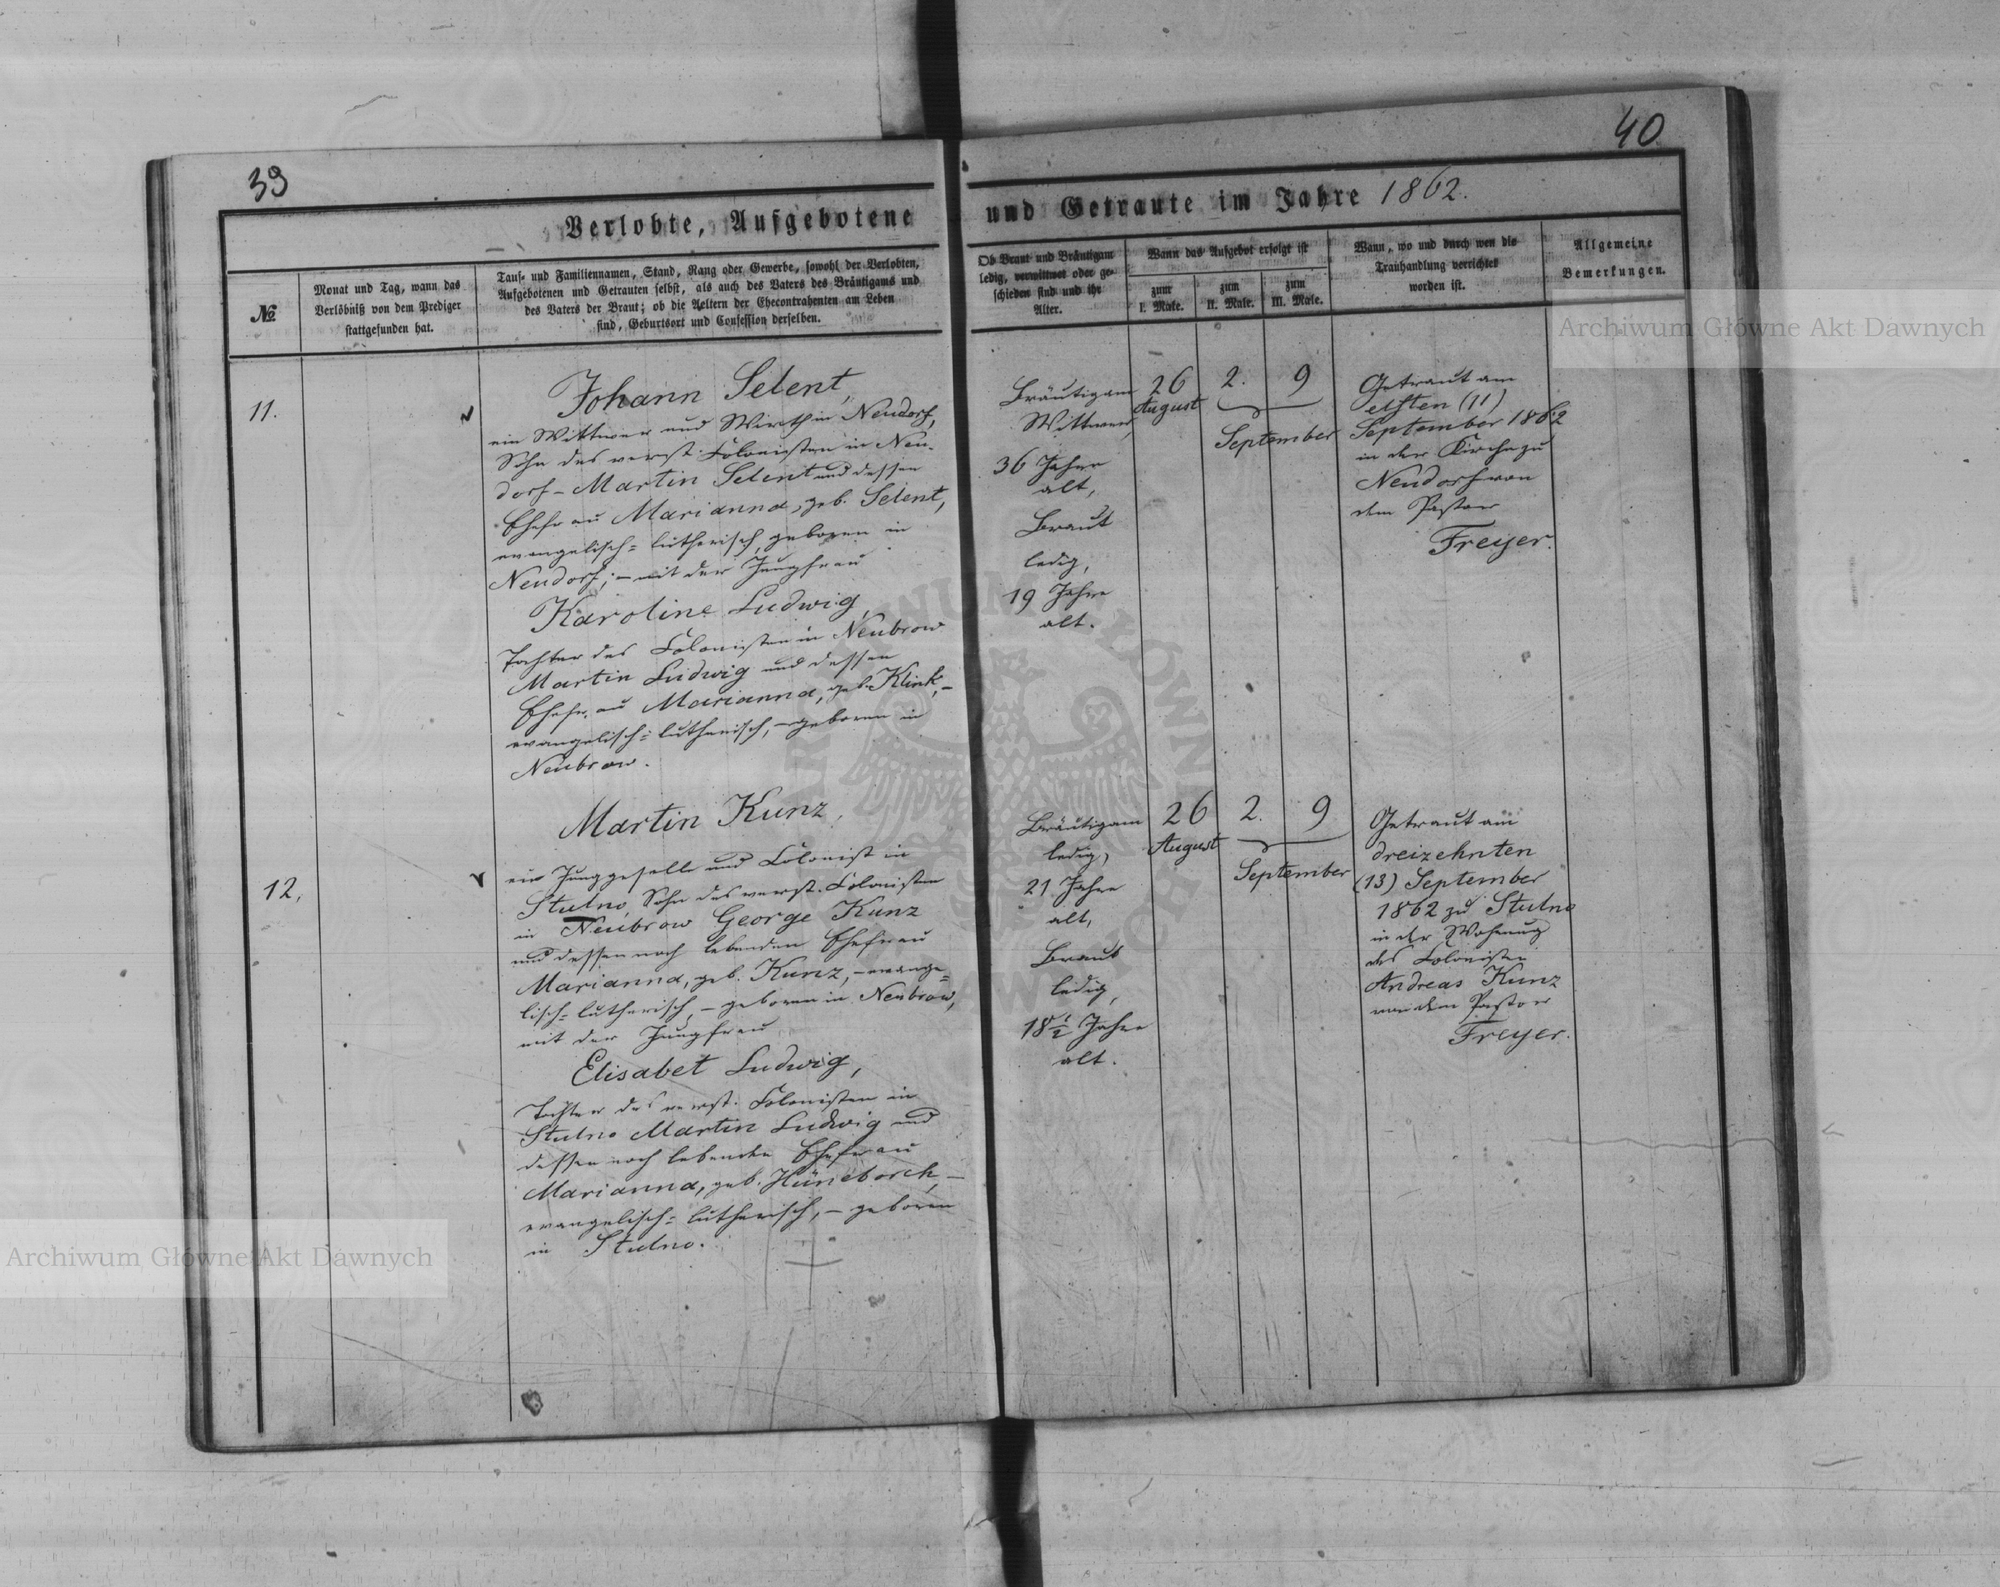 39
Verlobte, Aufgebotene
№
Monat und Tag, wann das
Verlöbniß von dem Prediger
stattgefunden hat.
Tauf- und Familiennamen, Stand, Rang oder Gewerbe, sowohl der Verlobten,
Aufgebotenen und Getrauten selbst, als auch des Vaters des Bräutigams und
des Vaters der Braut; ob die Aeltern der Ehecontrahenten am Leben
sind, Geburtsort und Confession derselben.
11.
Johann Selent,
ein Wittwer und Wirth in Neudorf,
Sohn des verst. Colonisten in Neu-
dorf - Martin Selent und dessen
Ehefrau Marianna, geb. Selent,
evangelisch-lutherisch, geboren in
Neudorf; - mit der Jungfrau
Karoline Ludwig,
Tochter des Colonisten in Neubrow
Martin Ludwig und dessen
Ehefrau Marianna, geb. Klink, -
evangelisch-lutherisch, - geboren in
Neubrow.
12.
Martin Kunz,
ein Junggeselle und Colonist in
Stulno, Sohn des verst. Colonisten
in Neubrow George Kunz
und dessen noch lebenden Ehefrau
Marianna, geb. Kunz, - evange-
lisch-lutherisch, - geboren in Neubrow,
mit der Jungfrau
Elisabet Ludwig,
Tochter des verst. Colonisten in
Stulno Martin Ludwig und
dessen noch lebenden Ehefrau
Marianna, geb. Hüneborch, -
evangelisch-lutherisch, - geboren
in Stulno.
40
und Getraute im Jahre 1862.
Ob Braut und Bräutigam
ledig, verwittwet oder ge-
schieden sind und ihr
Alter.
Wann das Aufgebot erfolgt ist
zum
I. Male.
zum
II. Male.
zum
III. Male.
Wann, wo und durch wen die
Trauhandlung verrichtet
worden ist.
Allgemeine
Bemerkungen.
Bräutigam
Wittwer,
36 Jahre
alt,
Braut
ledig,
19 Jahre
alt.
26
August
2.
9
September
Getraut am
elften (11)
September 1862
in der Kirche zu
Neudorf von
dem Pastor
Freyer.
Bräutigam
ledig,
21 Jahre
alt,
Braut
ledig,
18 1/2 Jahre
alt.
26
August
2.
9
September
Getraut am
dreizehnten
(13) September
1862 zu Stulno
in der Wohnung
des Colonisten
Andreas Kunz
von dem Pastor
Freyer.
Archiwum Główne Akt Dawnych
Archiwum Główne Akt Dawnych